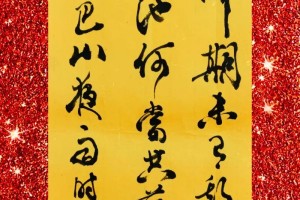 期未有
池何當共
巴山夜雨時